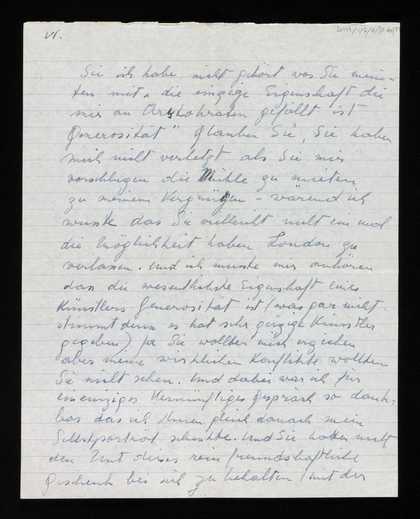 VI.
Sie ich habe nicht gehört was Sie mein-
ten mit „die einzige Eigenschaft die
mir an Aristokraten gefällt ist
Generosität" Glauben Sie, Sie haben
mich nicht verletzt als Sie mir
vorschlugen die Mühle zu mieten
zu meinem Vergnügen - wärend ich
wusste das Sie vielleicht nicht einmal
die Möglichkeit haben London zu
verlassen. Und ich musste mir anhören
das die wesentlichste Eigenschaft eines
Künstlers Generosität ist (was gar nicht
stimmt denn es hat sehr geizige Künstler
gegeben) Ja Sie wollten mich erziehen
aber meine wirklichen Konflikte wollten
Sie nicht sehen. Und dabei war ich für
ein einziges vernünftiges Gespräch so dank-
bar das ich Ihnen gleich danach mein
Selbstportrat schenkte. Und Sie hatten nicht
den Mut dieses rein freundschaftliche
Geschenk bei sich zu behalten (mit der